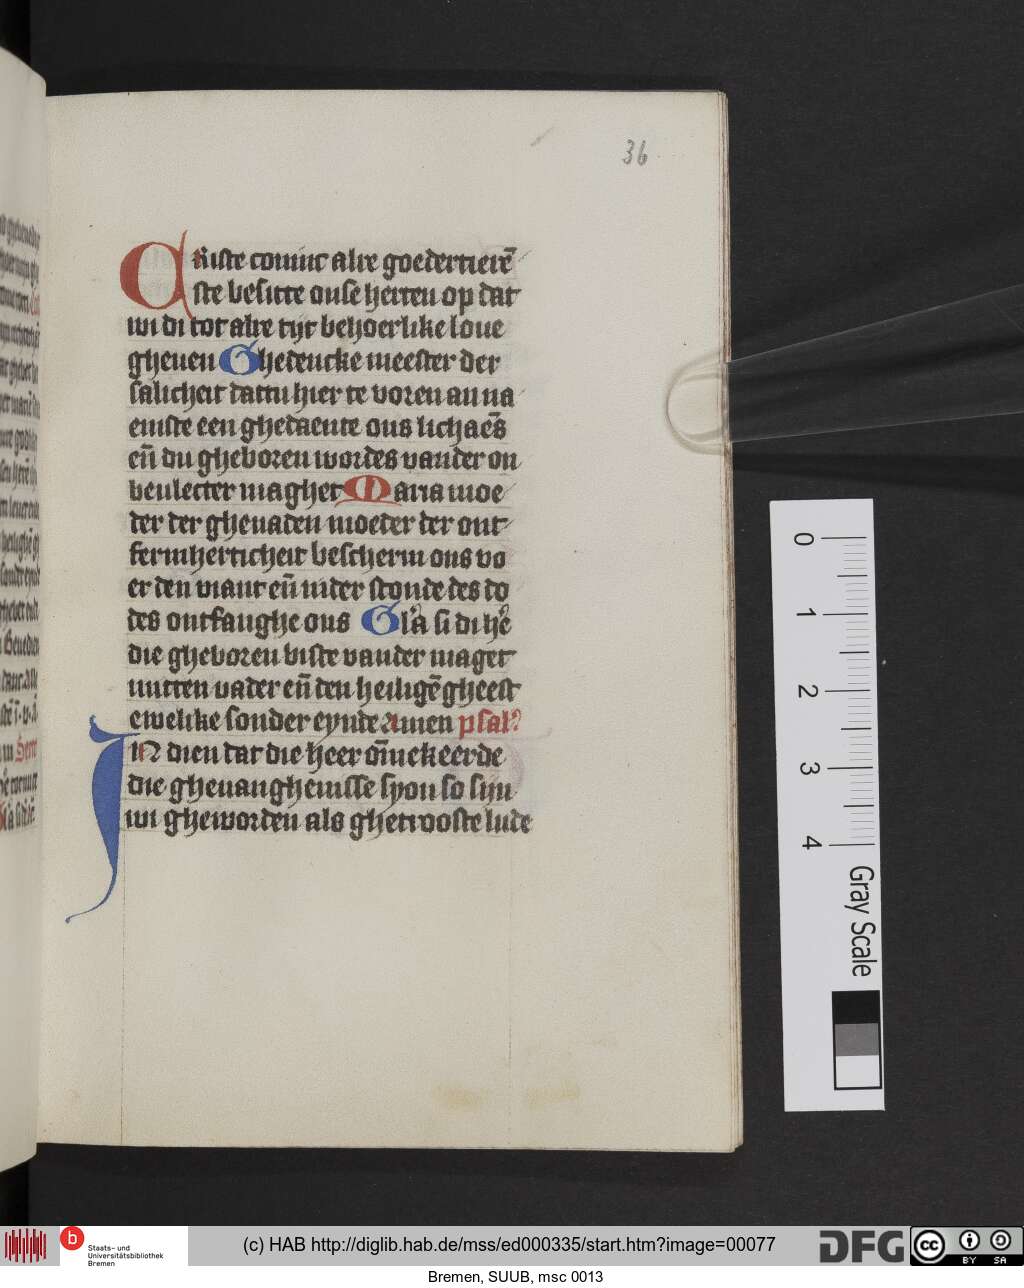 36
Criste coninc alre goedertierē
ste besitte onse herten op dat
wi di tot alre tijt behoerlike loue
gheuen Ghedencke meester der
salicheit dattu hier te voren an na
emste een ghedaente ons lichaēs
eñ du gheboren wordes vander on
beulecter maghet Maria moe
der der ghenaden moeder der ont
fermherticheit bescherm ons vo
er den viant eñ inder stonde des do
des ontfanghe ons Glā si di hē
die gheboren biste vander maget
mitten vader eñ den heiligē gheest
ewelike sonder eynde Amen psal
In dien dat die heer ōmekeerde
die gheuanghenisse syon so sijn
wi gheworden als ghetrooste lude
0
1
2
3
4
Gray Scale
b
Staats- und
Universitätsbibliothek
Bremen
(c) HAB http://diglib.hab.de/mss/ed000335/start.htm?image=00077
DFG
cc
BY SA
Bremen, SUUB, msc 0013